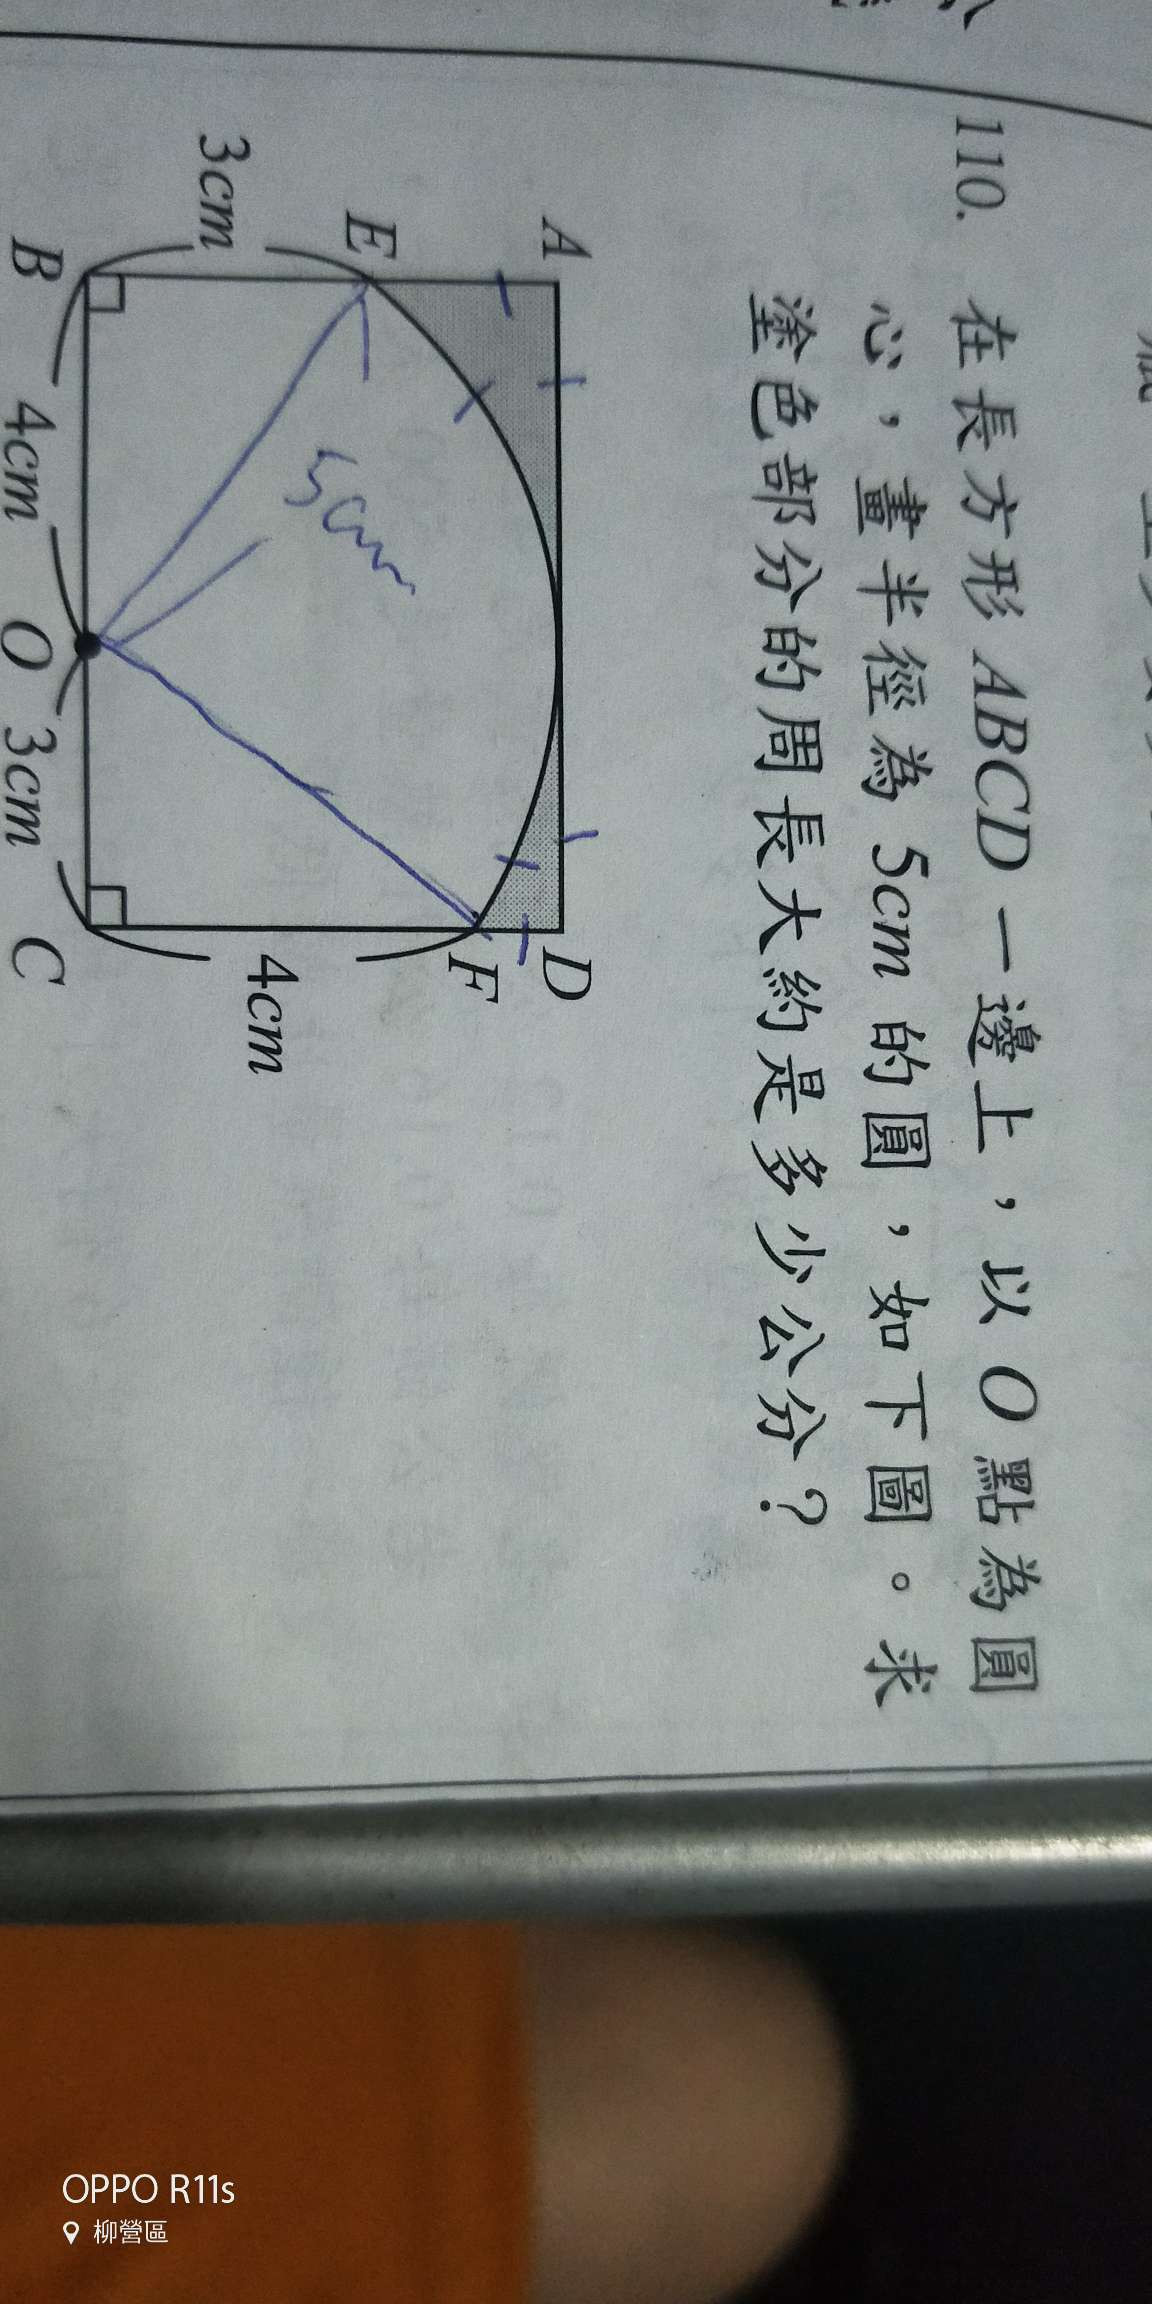 110. 在長方形 ABCD 一邊上，以 O 點為圓
心，畫半徑為 5cm 的圓，如下圖。求
塗色部分的周長大約是多少公分？
A
D
E
F
3cm
5cm
4cm
B
4cm
O
3cm
C
OPPO R11s
柳營區